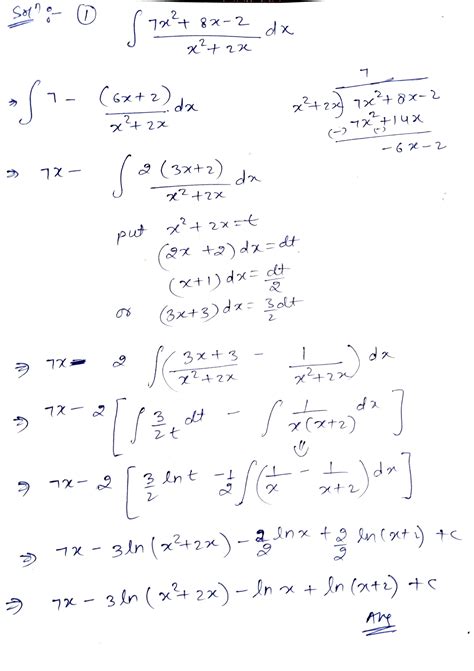 Solⁿ :- ① ∫ (7x² + 8x - 2)/(x² + 2x) dx
⇒ ∫ 7 - (6x+2)/(x²+2x) dx
7
x²+2x ) 7x² + 8x - 2
(-) 7x² + (-) 14x
-6x - 2
⇒ 7x - ∫ 2(3x+2)/(x²+2x) dx
put x² + 2x = t
(2x + 2) dx = dt
(x+1) dx = dt/2
or (3x+3) dx = 3/2 dt
⇒ 7x - 2 ∫ ( (3x+3)/(x²+2x) - 1/(x²+2x) ) dx
⇒ 7x - 2 [ ∫ 3/2t dt - ∫ 1/(x(x+2)) dx ]
⇒ 7x - 2 [ 3/2 ln t - 1/2 ∫ ( 1/x - 1/(x+2) ) dx ]
⇒ 7x - 3 ln(x²+2x) - 2/2 ln x + 2/2 ln(x+2) + c
⇒ 7x - 3 ln(x²+2x) - ln x + ln(x+2) + c
Ans